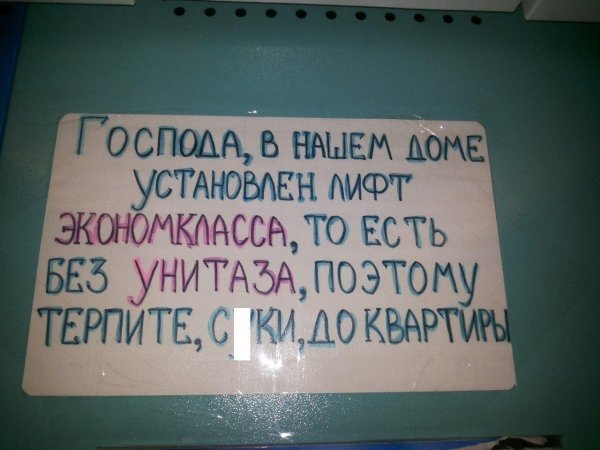 Господа, в нашем доме
установлен лифт
экономкласса, то есть
без унитаза, поэтому
терпите, с ки, до квартиры